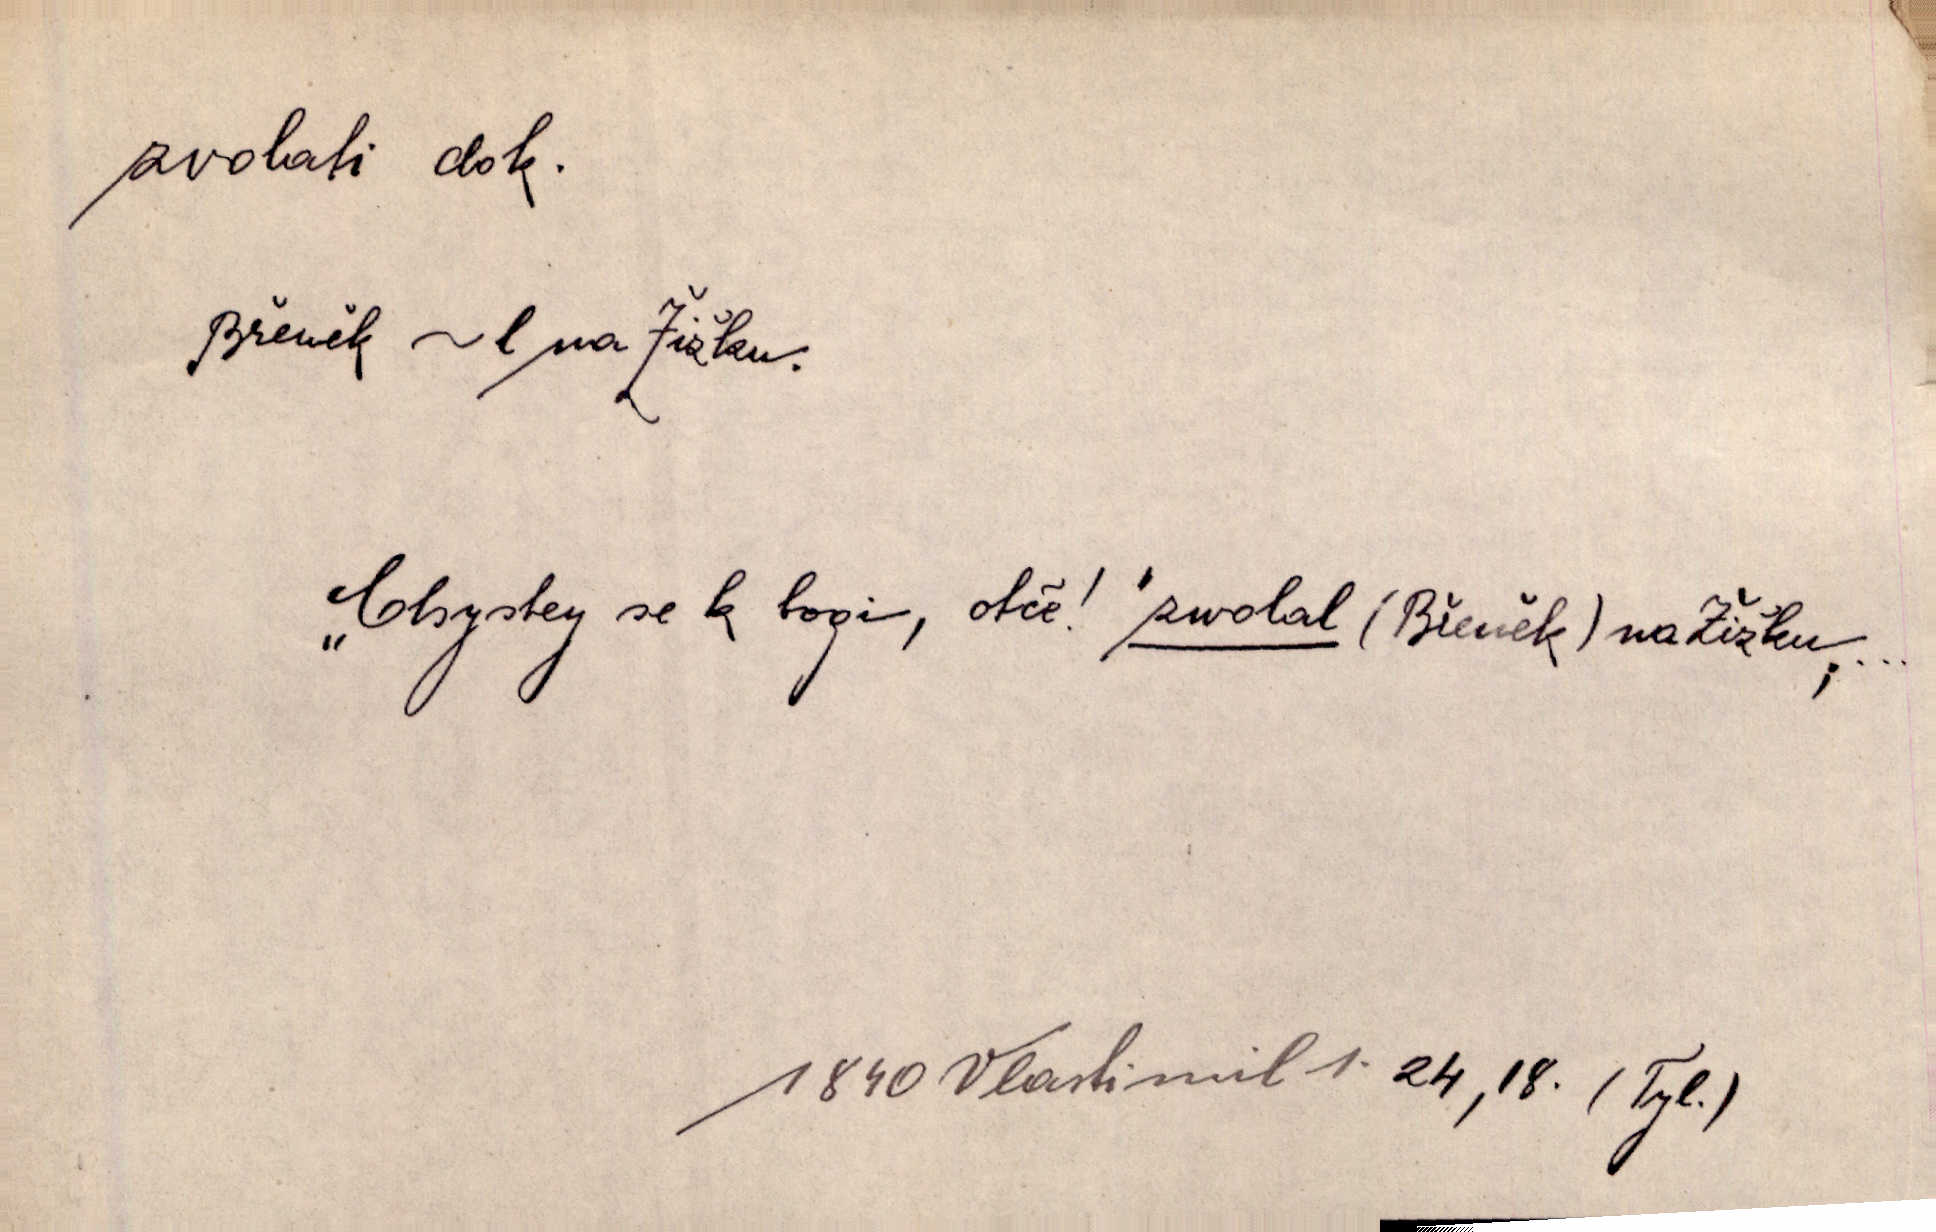 zvolati dok.
Břeněk ~l na Žižku.
„Chystey se k bogi, otče!" zwolal (Břeněk) na Žižku,...
1840 Vlastimil 1. 24,18. (Tyl.)